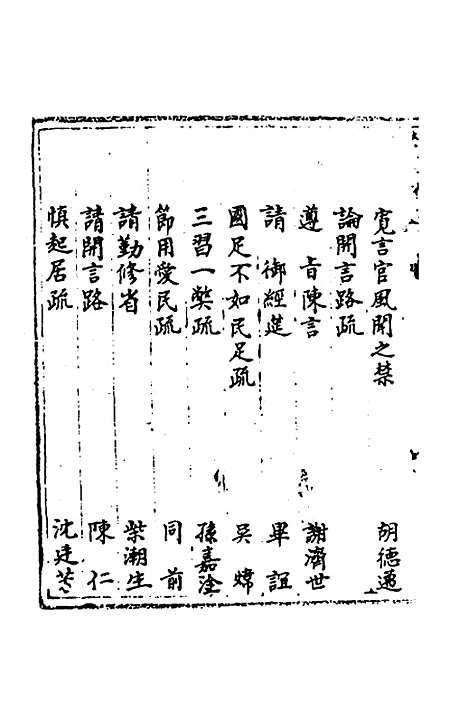 寛言官風聞之禁 胡德邁
論開言路疏
遵 旨陳言 謝濟世
請 御經筵 畢誼
國足不如民足疏 吴煒
三習一獘疏 孫嘉淦
節用愛民疏 同前
請勤修省 柴潮生
請開言路 陳仁
慎起居疏 沈廷芳